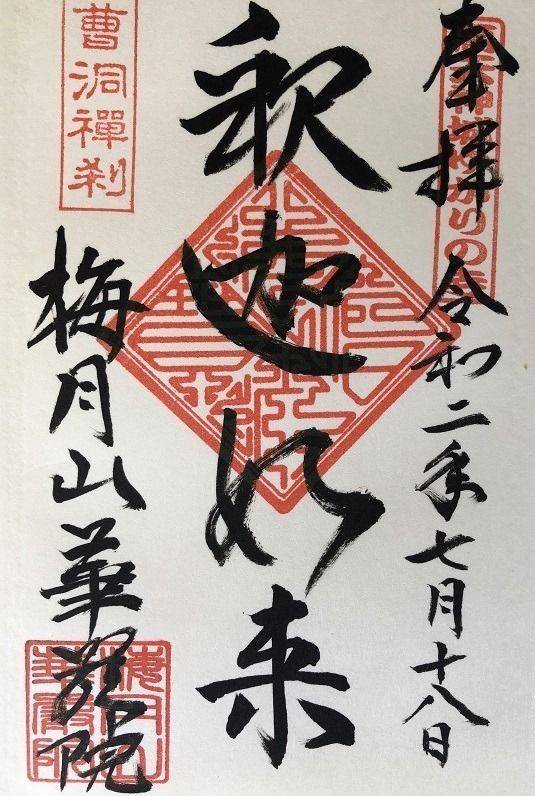 奉拝 令和二年七月十八日
かりの
釈迦如来
曹洞禪刹
梅月山華厳院